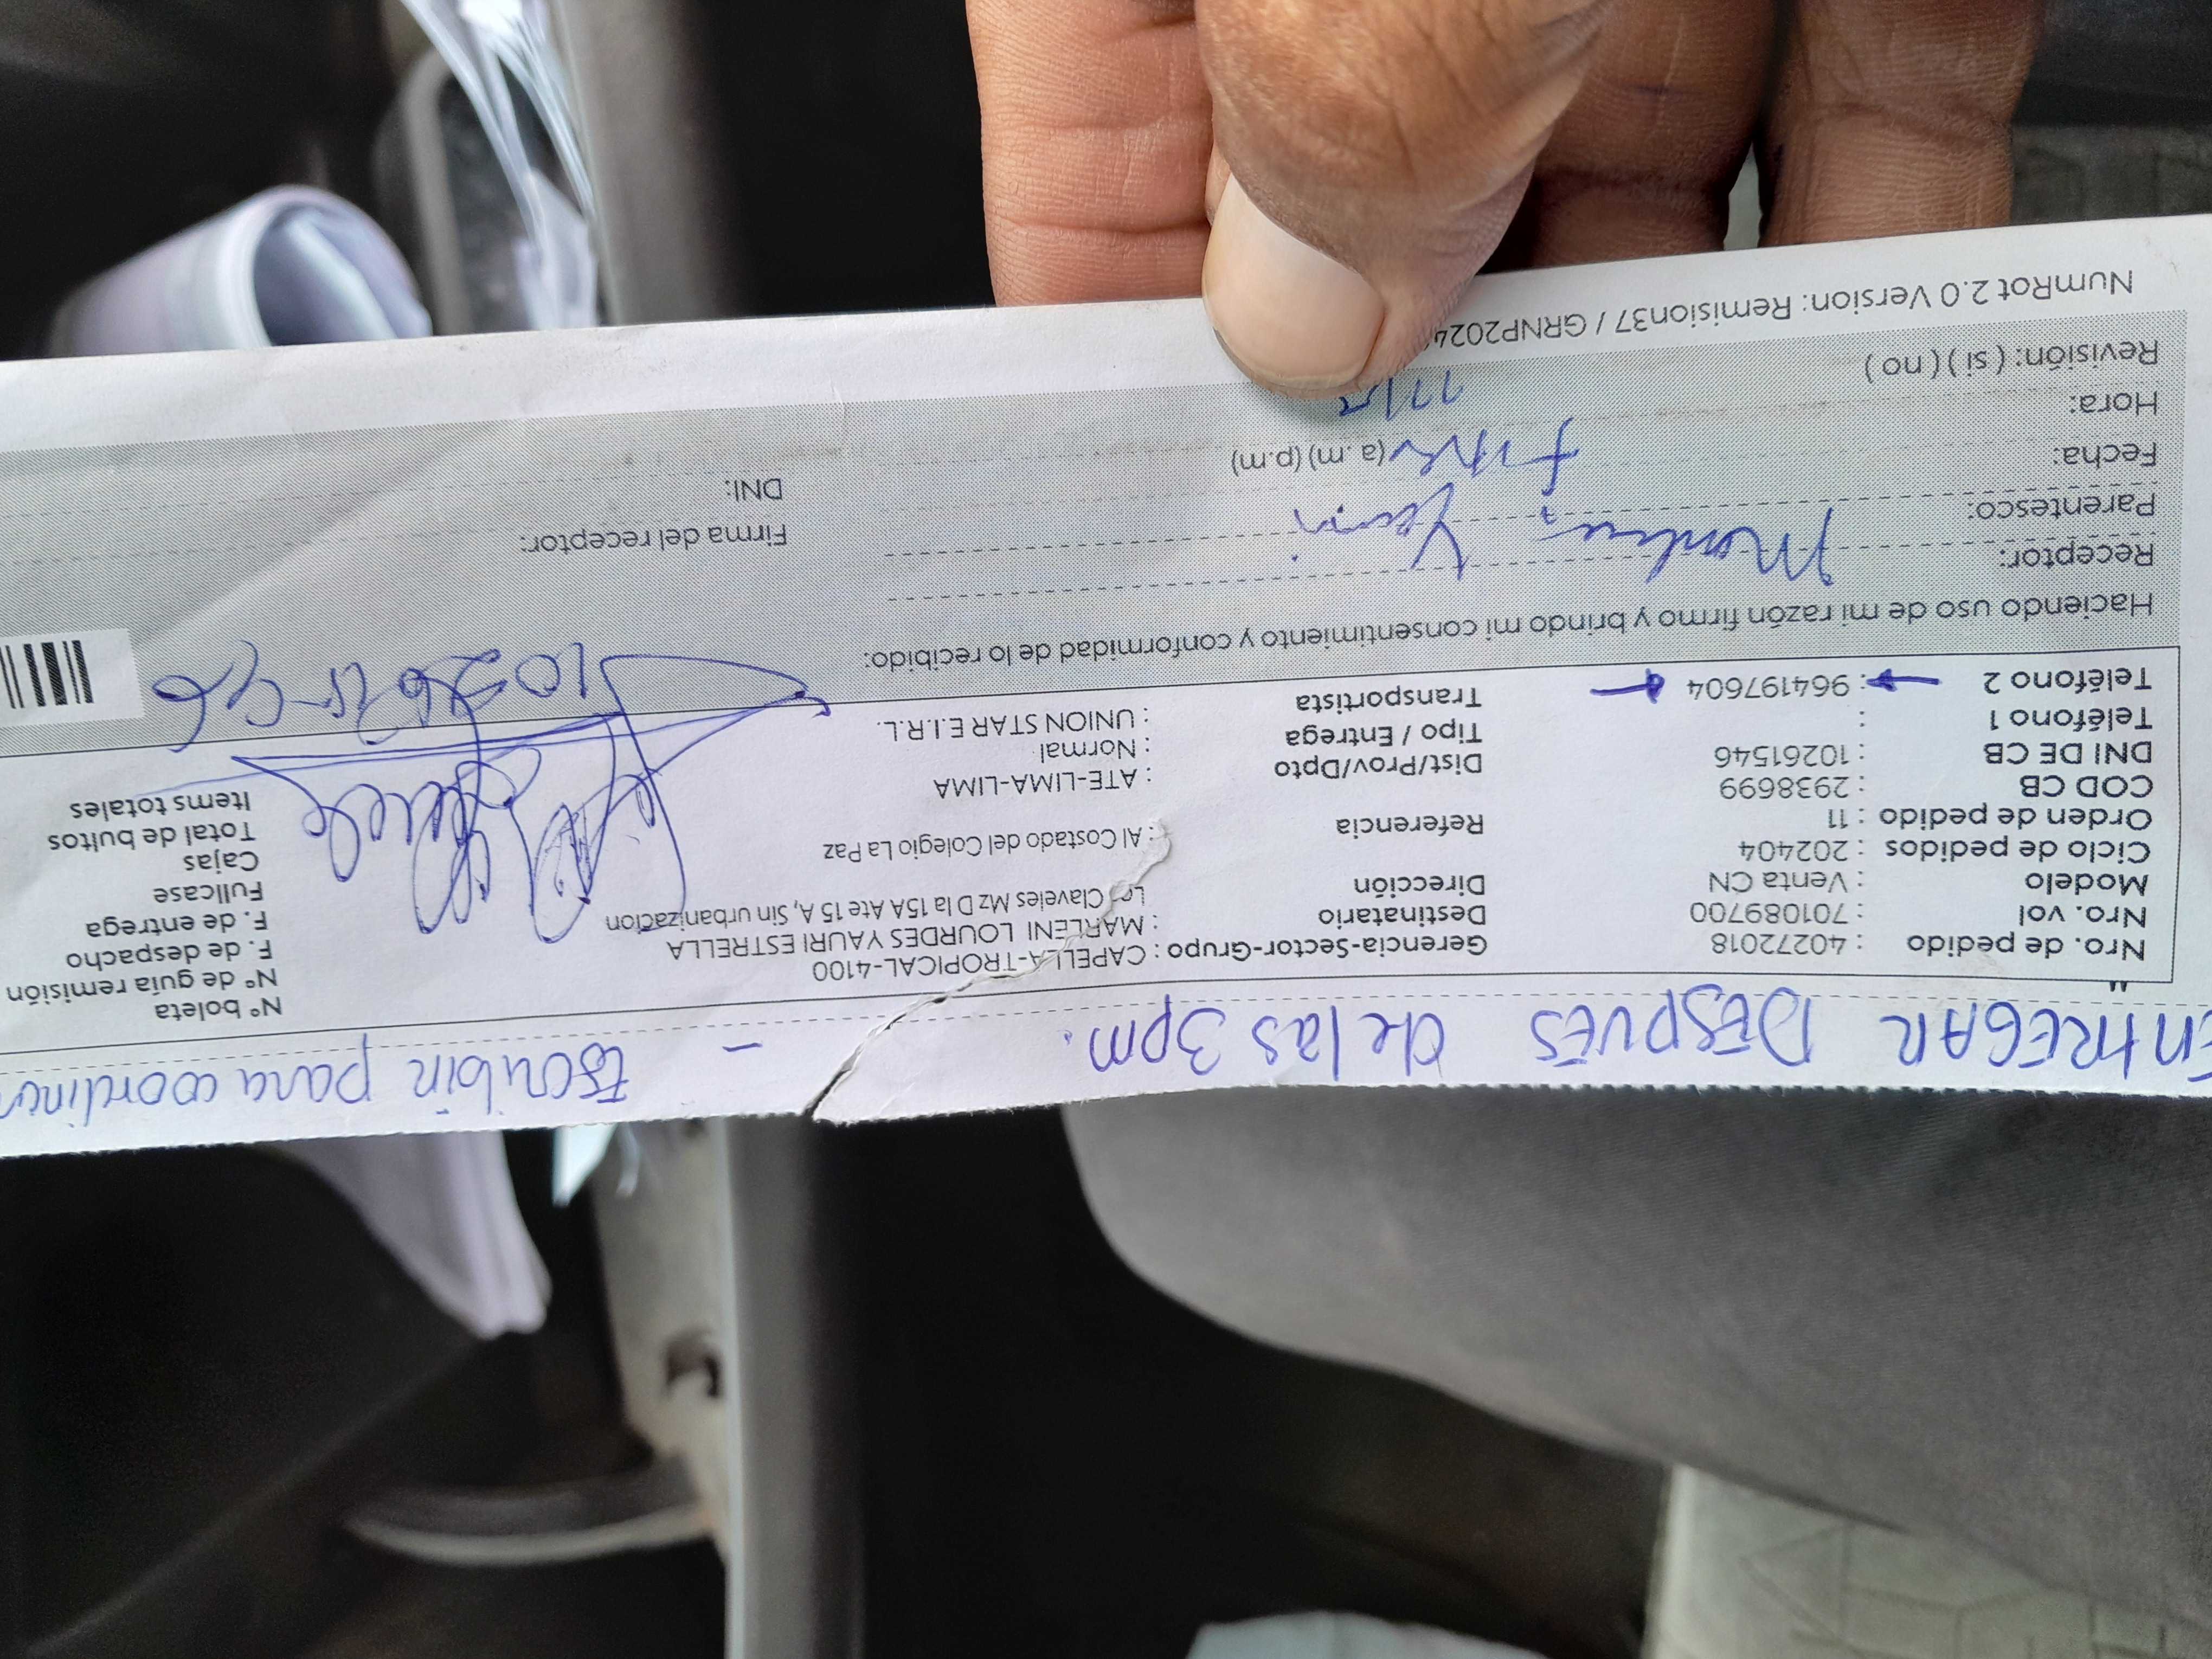 ENTREGAR DESPUÉS de las 3pm. - Escribir para coordinar
Nro. de pedido : 40272018
Nro. vol : 701089700
Modelo : Venta CN
Ciclo de pedidos : 202404
Orden de pedido : 11
COD CB : 2938699
DNI DE CB : 10261546
Teléfono 1 :
Teléfono 2 : 964197604
Gerencia-Sector-Grupo : CAPELLA-TROPICAL-4100
Destinatario : MARLENI LOURDES YAURI ESTRELLA
Dirección Los Claveles Mz D la 15A Ate 15 A, Sin urbanizacion
Referencia : Al Costado del Colegio La Paz
Dist/Prov/Dpto : ATE-LIMA-LIMA
Tipo / Entrega : Normal
Transportista : UNION STAR E.I.R.L.
N° boleta
N° de guía remisión
F. de despacho
F. de entrega
Fullcase
Cajas
Total de bultos
Items totales
Haciendo uso de mi razón firmo y brindo mi consentimiento y conformidad de lo recibido:
Receptor: Yauri
Parentesco:
Fecha:
Hora: (a.m) (p.m)
Revisión: ( si ) ( no )
Firma del receptor:
DNI:
NumRot 2.0 Version: Remision37 / GRNP2024